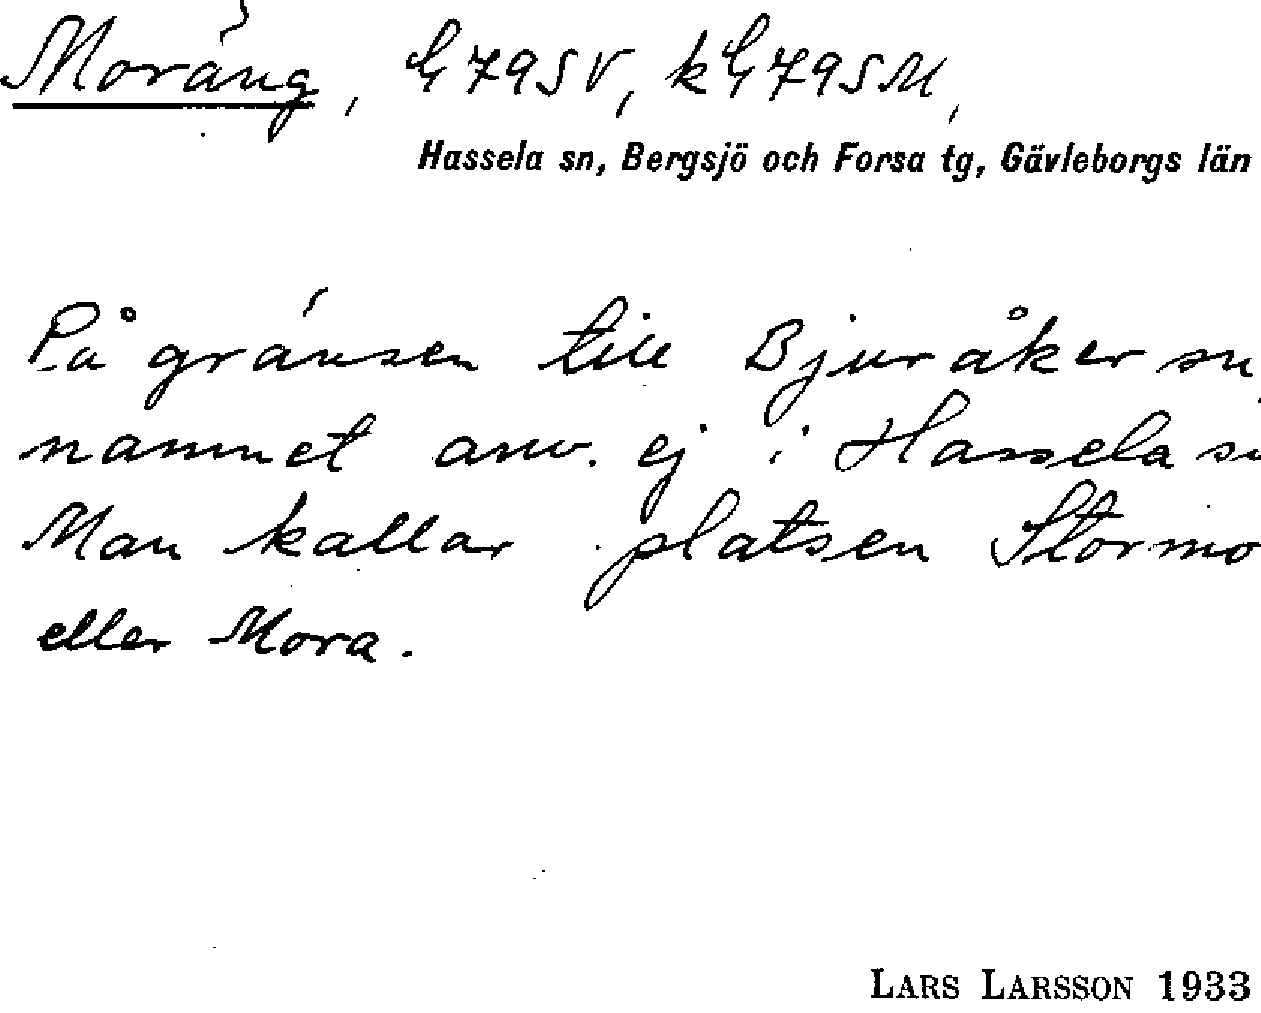 Moräng, G79SV, kG79SM,
Hassela sn, Bergsjö och Forsa tg, Gävleborgs län
På gränsen till Bjuråker sn
namnet anv. ej i Hassela sn
Man kallar platsen Stormo
eller Mora.
LARS LARSSON 1933